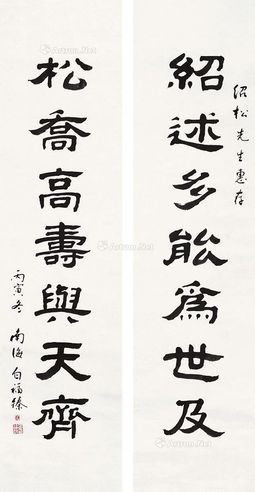 紹松先生惠存
紹述多能為世及
松喬高壽與天齊
丙寅冬 南海 白福臻